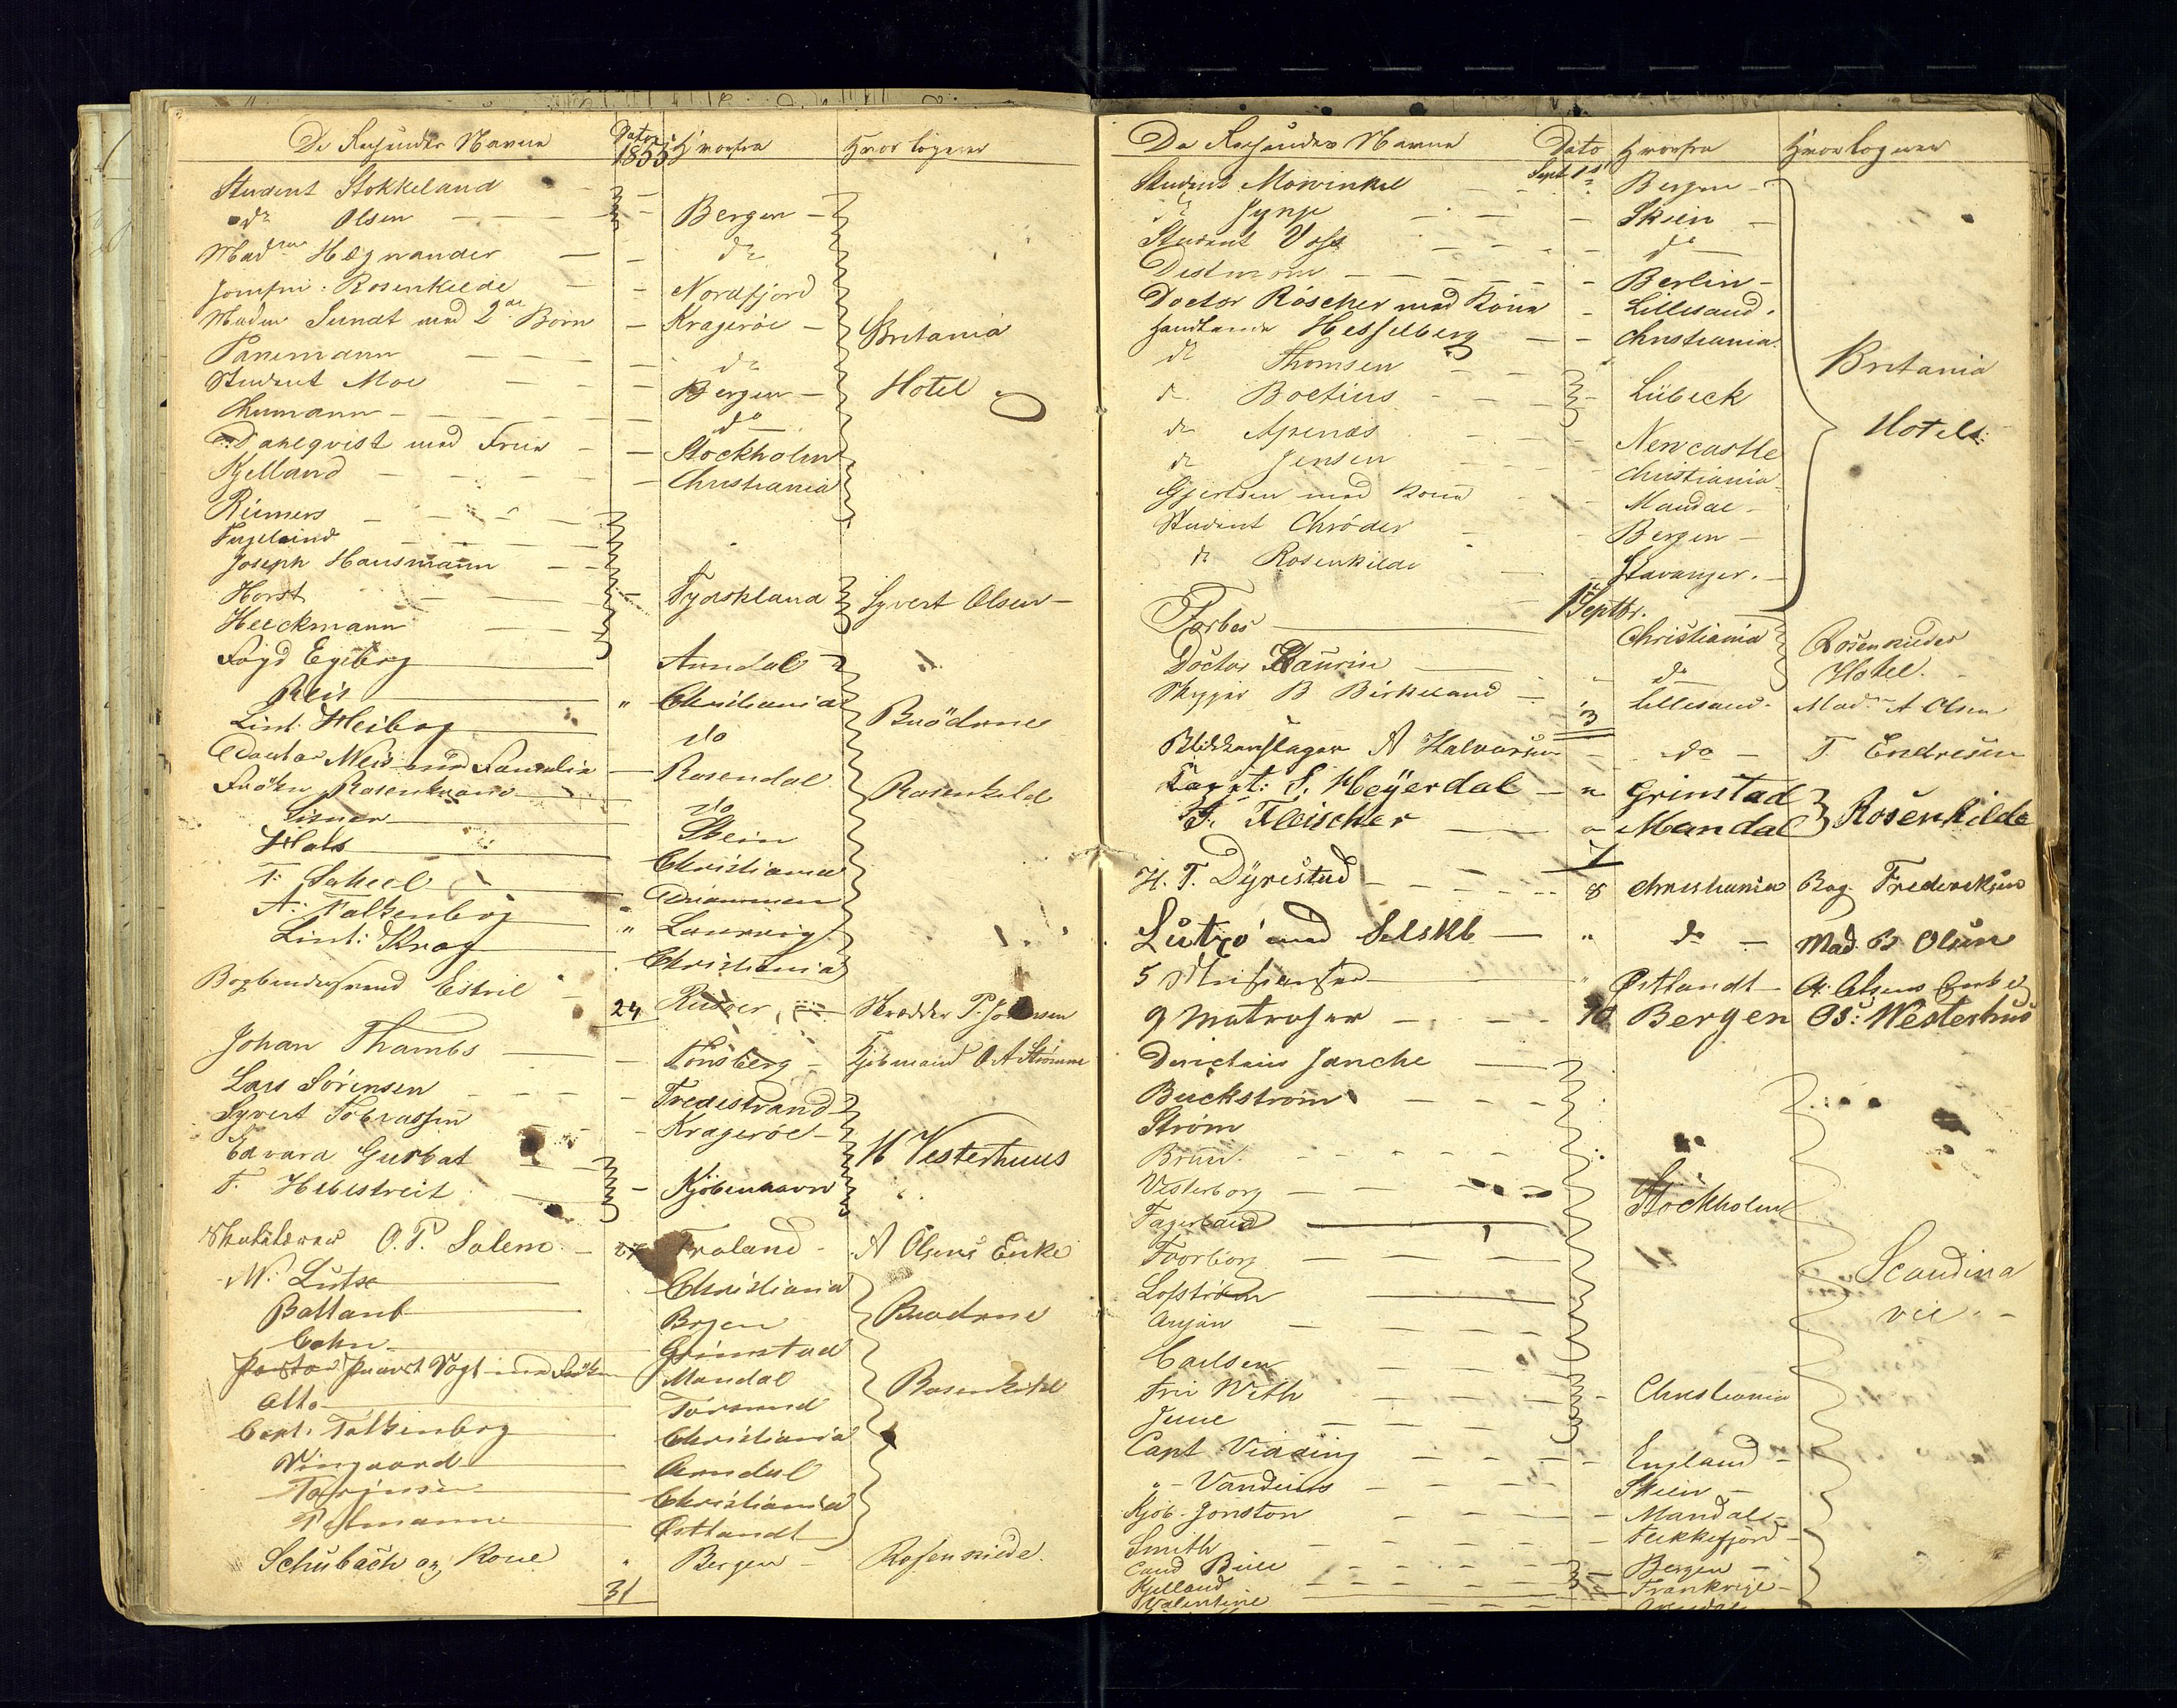 De Reisendes Navne Dato 1855 Hvorfra Hvor logerer
Student Stokkeland
do Olsen Bergen
Madme Hegnander do
Jomfru Rosenkilde Nordfjord
Madm Sundt med 2de Børn Kragerøe Britania
Panemann do
Student Moe Bergen Hotel
do
Dahlqvist med Frue Stockholm
Kjelland Christiania
Riemers
Joseph Hausmann
Horst Tydskland Syvert Olsen
Heeckmann
Fogd Egeberg Arendal
Reis " Christiania
Lint. Heiberg do Brødrene
Doctor Weis med Familie Rosendal
Frøken Rosenkrans do Rosenkilde
Skein
Hals Christiania
T. Scheel Drammen
A. Falkenberg " Laurvig
Lint: Krag Christiania
Bogbindersvend Estril 24 Skrædder P.
Johan Thambs Tønsberg Kjøbmand O A Strømme
Lars Sörensen Tvedestrand
Syvert Tobiassen Kragerøe
Edvard H Vesterhuus
F. Hebestreit Kjøbenhavn
O. P. Solem 27 Froland A Olsens Enke
N. Lütze Christiania
Ballant Bergen Brødrene
Cohn Grimstad
Pastor Provst Vogt med Frøken Mandal Rosenkilde
Otto Farsund
Capt. Falkenberg Christiania
Vingaard Arendal
Torjusen Christiania
Østlandt
Schubach og Kone " Bergen Rosenkilde
31
De Reisendes Navne Dato Hvorfra Hvor logerer
Student Mowinkel Sept 1st Bergen
do Skien
Student Voss do
Distmann Berlin
Doctor Röscher med Kone Lillesand
Handlende Hesselberg Christiania
do Thomsen Britania
do Boetius Lübeck
do Apenæs Newcastle Hotel
do Jensen Christiania
Gjertsen med Kone Mandal
Student Chrøder Bergen
do Rosenkilde Stavanger
Forbes 1 Septbr. Christiania Rosenkildes
Doctor Hartvin do Hotel
Skipper B Birkeland Lillesand Madm A Olsen
3
Blikkenslager A Halvorsen do T. Endresen
Capt: S. Heÿerdal " Grimstad Rosenkilde
F. Fleischer " Mandal
7
H. T. Dÿrestad 8 Christiania Bag. Frederiksen
Lützo med Selskb " do Mad. B Olsen
5 Østlandt A. Olsens Enke
9 Matroser 10 Bergen Os: Westerhus
Directeur Janche
Buckström
Strøm
Brun
Vesterborg Stockholm
Fagerlund
Tvorborg Scandina
Lofström vie
Anjou
Carlsen
Fru With Christiania
June
Capt Vidding England
" Vandeurs Skien
Kjöb. Jonston Mandal
Smith Flekkefjord
Cand Buee Bergen
Kjelland Frankrige
Valentine